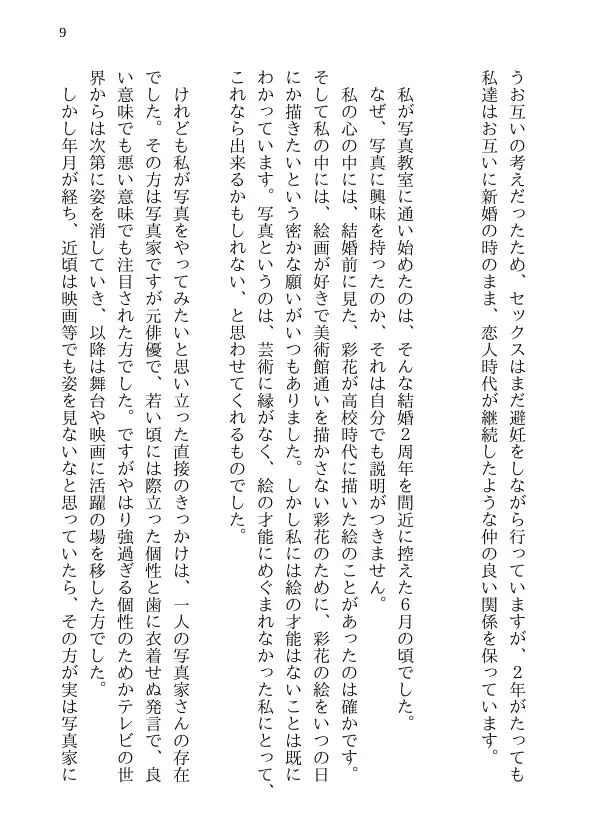 9
うお互いの考えだったため、セックスはまだ避妊をしながら行っていますが、２年がたっても
私達はお互いに新婚の時のまま、恋人時代が継続したような仲の良い関係を保っています。
私が写真教室に通い始めたのは、そんな結婚２周年を間近に控えた６月の頃でした。
なぜ、写真に興味を持ったのか、それは自分でも説明がつきません。
私の心の中には、結婚前に見た、彩花が高校時代に描いた絵のことがあったのは確かです。
そして私の中には、絵画が好きで美術館通いを描かさない彩花のために、彩花の絵をいつの日
にか描きたいという密かな願いがいつもありました。しかし私には絵の才能はないことは既に
わかっています。写真というのは、芸術に縁がなく、絵の才能にめぐまれなかった私にとって、
これなら出来るかもしれない、と思わせてくれるものでした。
けれども私が写真をやってみたいと思い立った直接のきっかけは、一人の写真家さんの存在
でした。その方は写真家ですが元俳優で、若い頃には際立った個性と歯に衣着せぬ発言で、良
い意味でも悪い意味でも注目された方でした。ですがやはり強過ぎる個性のためかテレビの世
界からは次第に姿を消していき、以降は舞台や映画に活躍の場を移した方でした。
しかし年月が経ち、近頃は映画等でも姿を見ないなと思っていたら、その方が実は写真家に